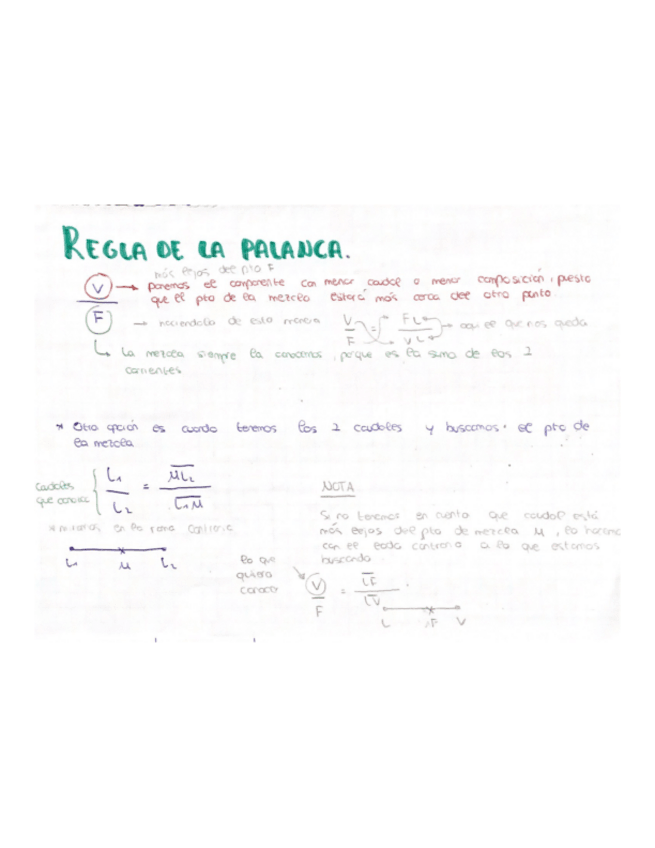 REGLA DE LA PALANCA.
más lejos del pto F
V → ponemos el componente con menor caudal o menor composición, puesto
que el pto de la mezcla estará más cerca del otro punto.
F → haciendolo de esta manera V/F = FL/VL → aqui el que nos queda
La mezcla siempre la conocemos, porque es la suma de las 2
corrientes
* Otra opción es cuando tenemos los 2 caudales y buscamos el pto de
la mezcla
Caudales
que conozco
L1/L2 = ML2/L1M
en la rama contraria
L1 M L2
NOTA
Si no tenemos en cuenta que caudal está
más lejos del pto de mezcla M, lo hacemos
con el lado contrario a lo que estamos
buscando
lo que
quiero
conocer
V/F = LF/LV
L F V